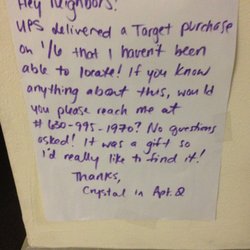 Hey Neighbors!
UPS delivered a Target purchase
on 1/6 that I haven't been
able to locate! If you know
anything about this, would
you please reach me at
# 630-995-1970? No questions
asked! It was a gift so
I'd really like to find it!
Thanks,
Crystal in Apt. Q